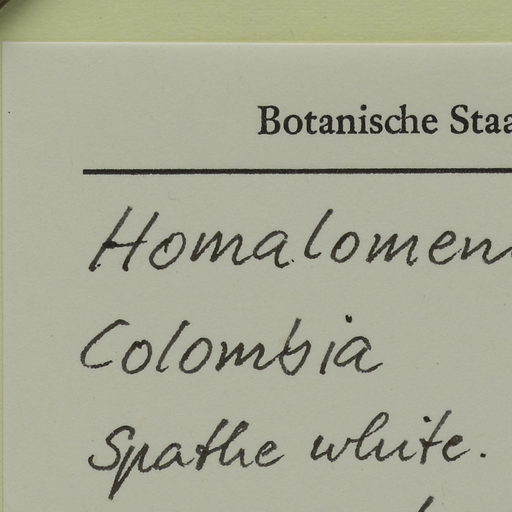 Botanische Staa
Homalomen
Colombia
Spathe white.